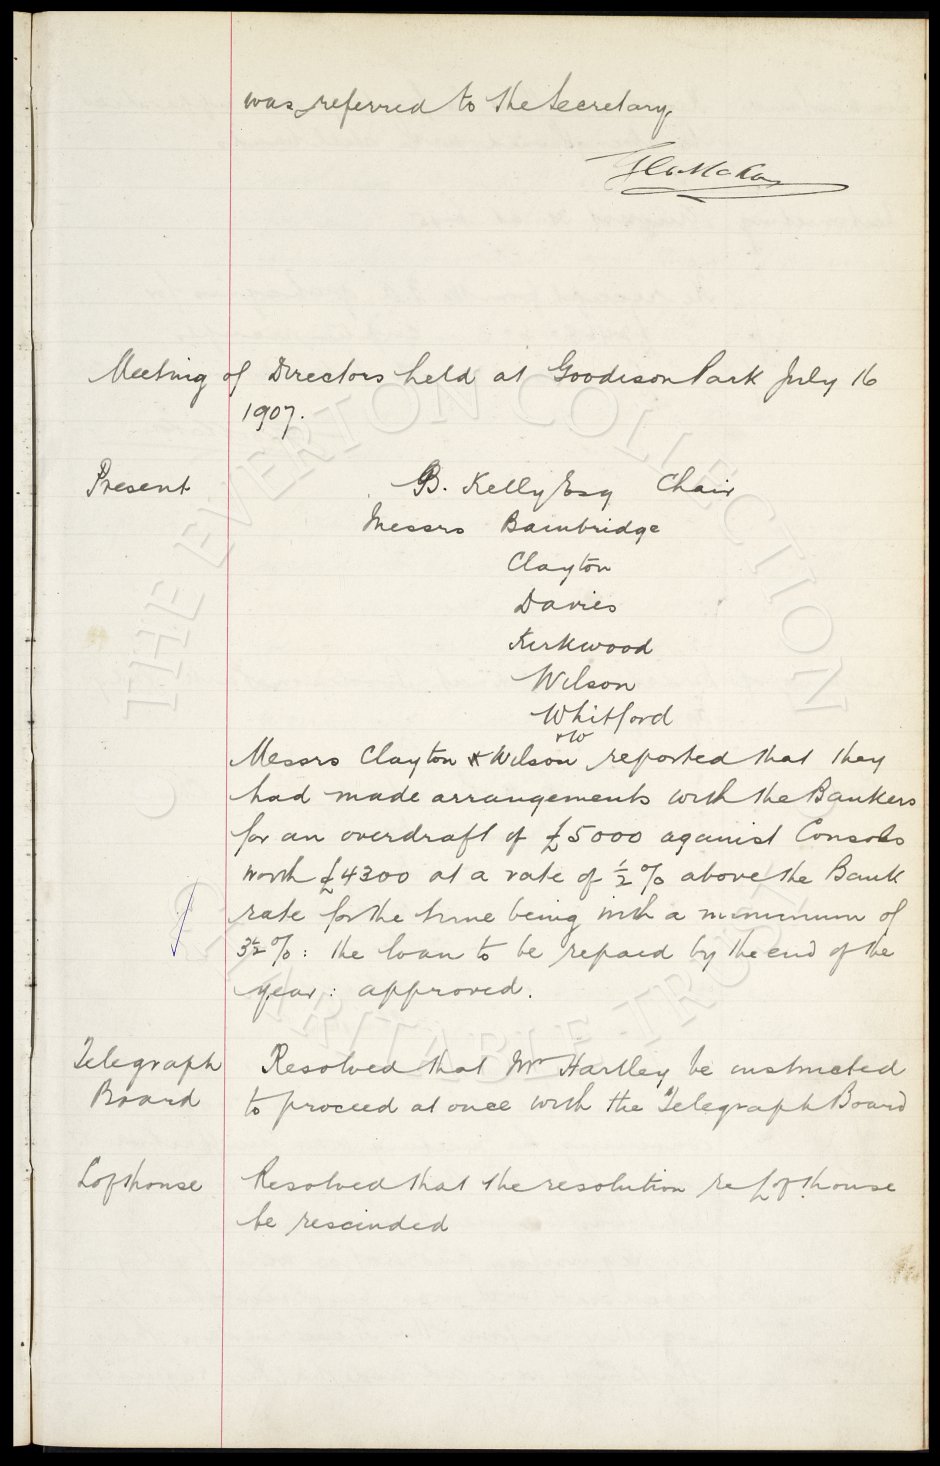 was referred to the Secretary.
Meeting of Directors held at Goodison Park July 16
1907.
Present B. Kelly Esq Chair
Messrs Bainbridge
Clayton
Davies
Kirkwood
Wilson
Whitford
+ W
Messrs Clayton & Wilson reported that they
had made arrangements with the Bankers
for an overdraft of £5000 against Consols
worth £4300 at a rate of ½% above the Bank
rate for the time being with a minimum of
3½%: the loan to be repaid by the end of the
year: approved.
Telegraph Resolved that Mr Hartley be instructed
Board to proceed at once with the Telegraph Board
Lofthouse Resolved that the resolution re Lofthouse
be rescinded
© THE EVERTON COLLECTION CHARITABLE TRUST